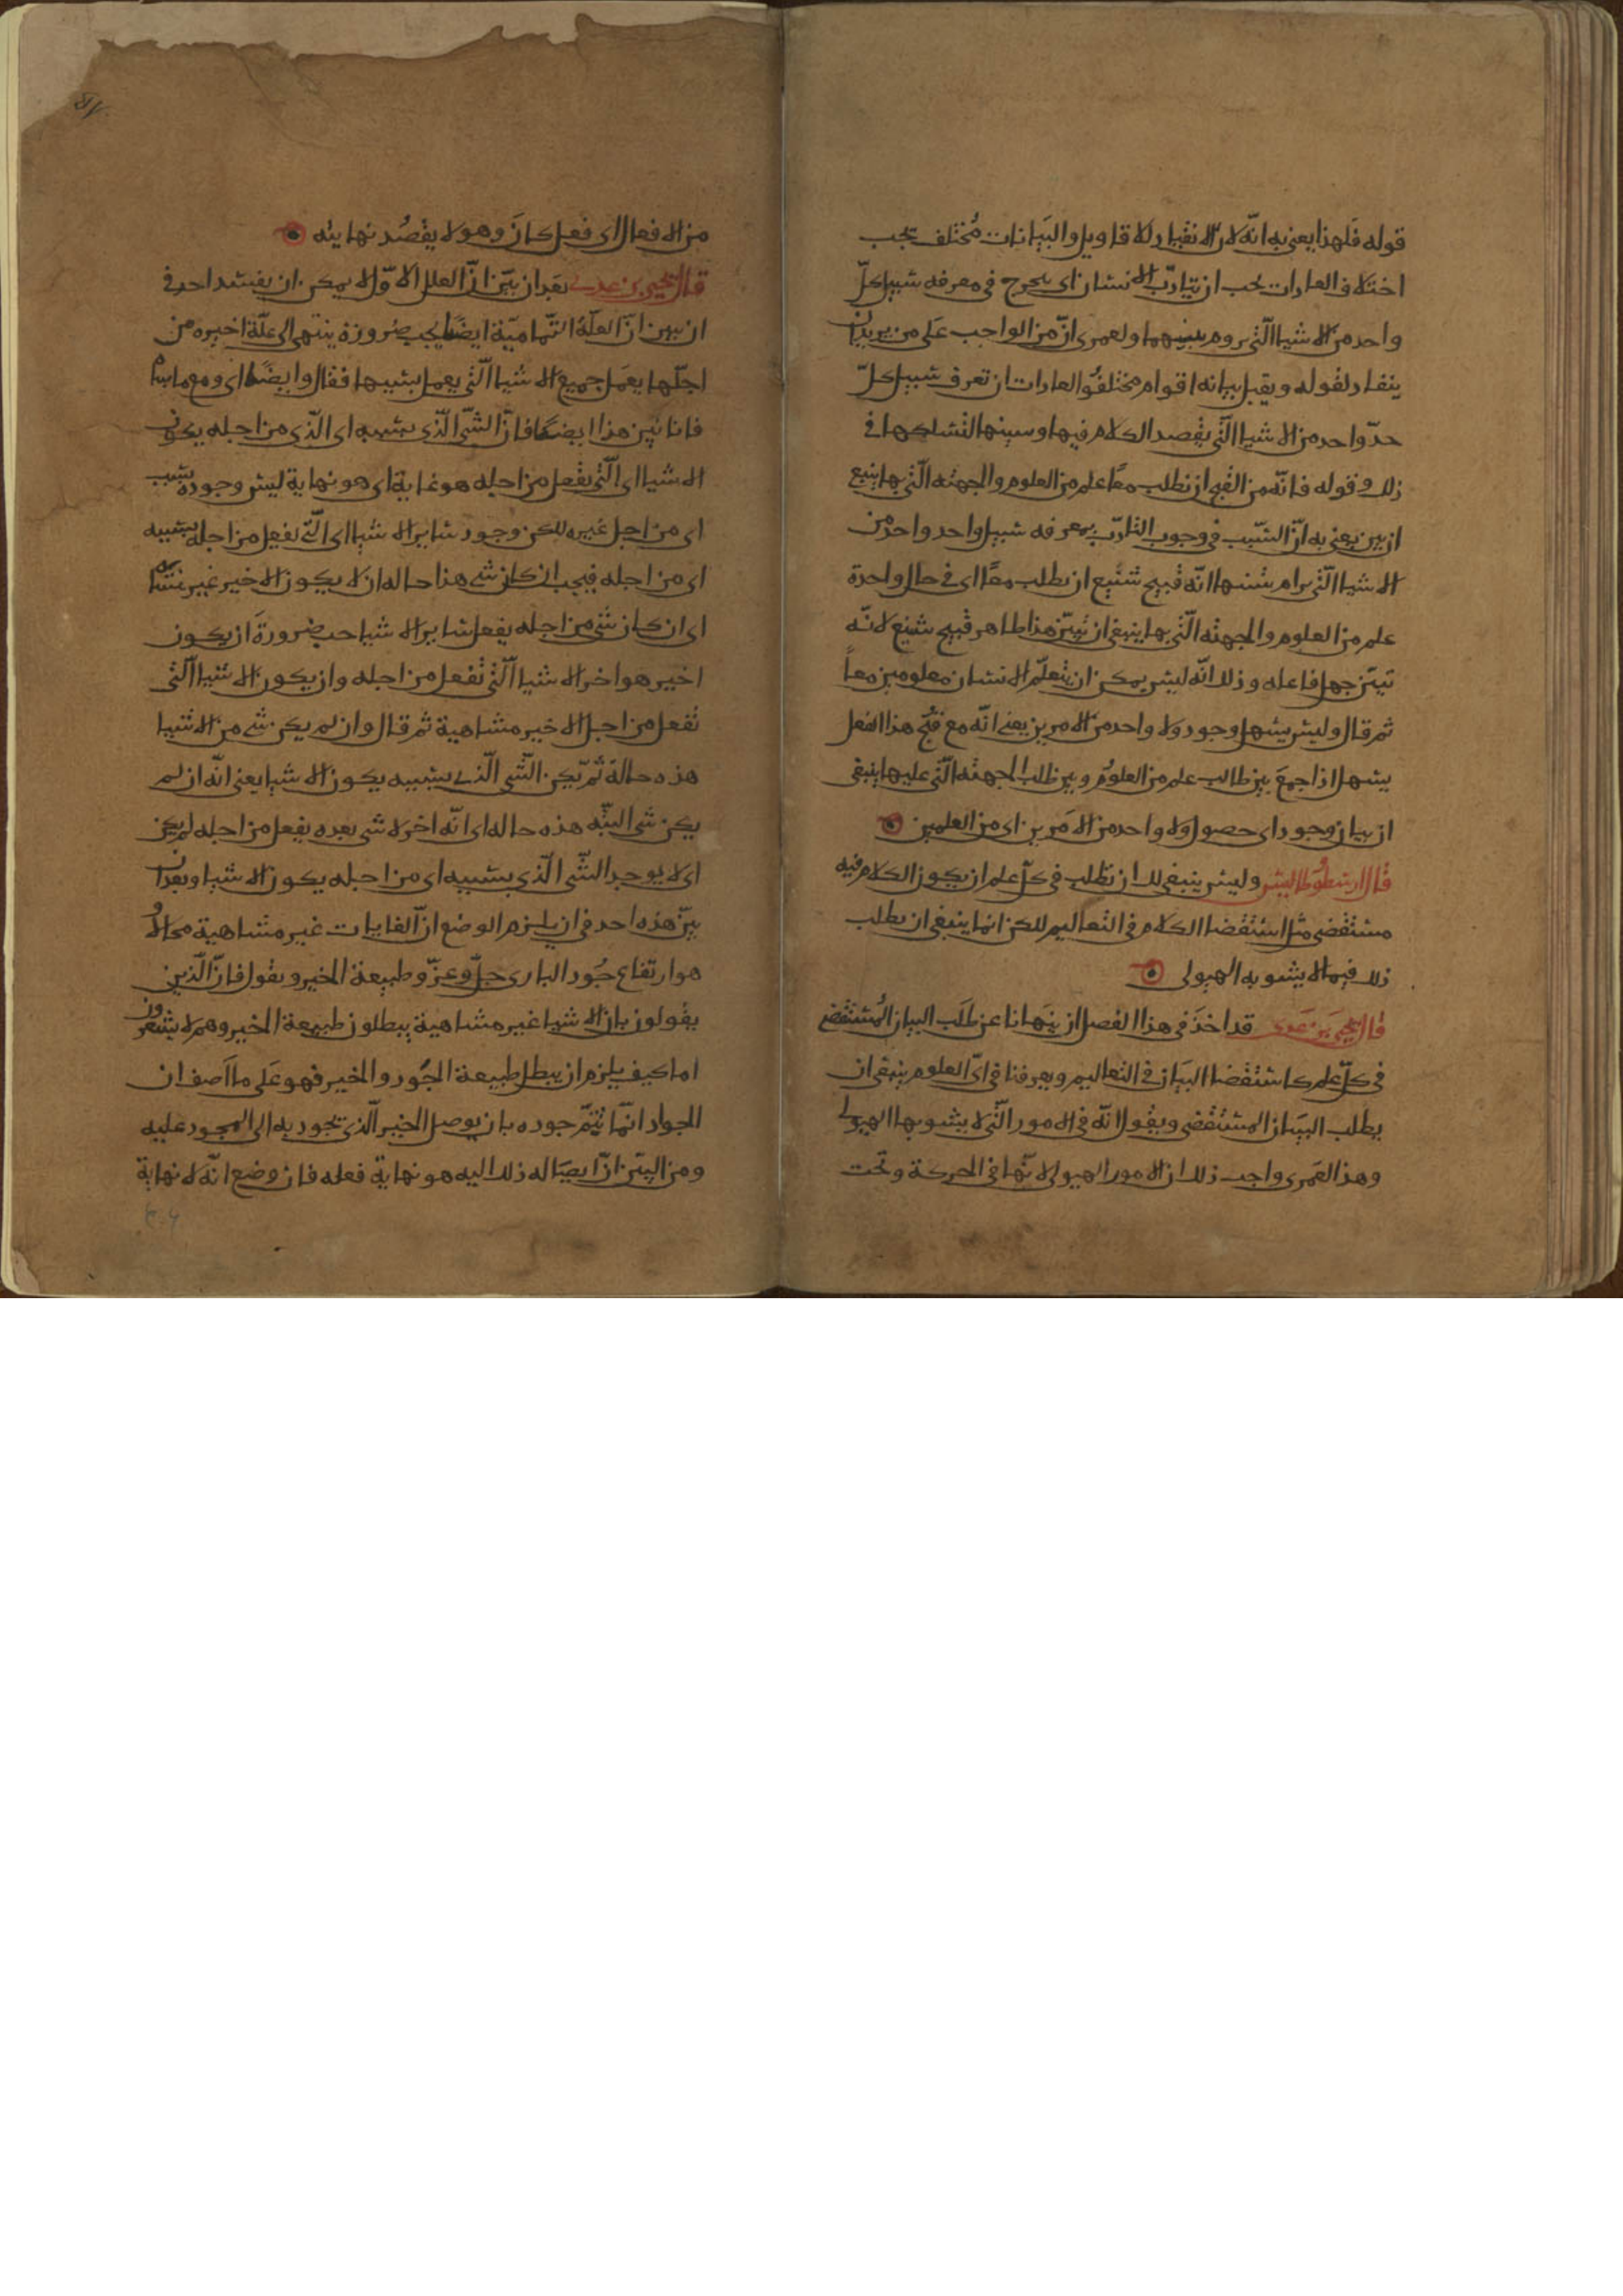 قوله فلهذا يعني به انه لان الانقياد للاقاويل والبيانات مختلف بحب
اختلاف العادات يجب ان يتادب الانسان اي يخرج في معرفه سبيل كل
واحد من الاشيا التي يروم تبينها ولعمري ان من الواجب على من يريد ان
ينقاد لقوله ويقبل بيانه اقوام مختلفو العادات ان تعرف سبيل كل
حد واحد من الاشيا التي يقصد الكلام فيها وسبيلها التسلكها في
ذلك وقوله فانه من القبح ان نطلب معا علم من العلوم والجهته التي بها ينبغ
ان يبين يعني به ان السبب في وجوب التادب بمعرفه سبيل واحد واحد من
الاشيا التي يرام تبينها انه قبيح شنيع ان نطلب معا اي في حال واحدة
علم من العلوم والجهته التي بها ينبغي ان تبين هذا ظاهر قبيح شنيع لانه
تبين جهل فاعله وذلك انه ليس يمكن ان يتعلم الانسان معلومين معا
ثم قال وليس يسهل وجود ولا واحد من الامرين يعني انه مع قبح هذا الفعل
يسهل اذا جمع بين طالب علم من العلوم وبين طلب الجهته التي عليها ينبغي
ان بيان وجود اي حصول ولا واحد من الامرين اي من العلمين
قال ارسطوطاليس وليس ينبغي لك ان نطلب في كل علم ان يكون الكلام فيه
مستقضى مثل استقضا الكلام في التعاليم لكن انما ينبغي ان يطلب
ذلك فيما لا يشوبه الهيولى
قال يحيى بن عدى قد اخذ في هذا الفصل ان ينهانا عن طلب البيان المستقضى
في كل علم كاستقضا البيان في التعاليم ويعرفنا في اي العلوم ينبغي ان
يطلب البيان المستقضى ويقول انه في الامور التي لا يشوبها الهيولى
وهذا لعمري واجب ذلك ان الامور الهيولى لانها في الحركة وتحت
من الافعال اي فعل كان وهو لا يقصد نهايته
قال يحيى بن عدى بعد ان بين ان العلل الاول لا يمكن ان يفسد احد في
ان يبين ان العلة التمامية ايضا يجب ضرورة ينتهى الى علة اخيره من
اجلها يعمل جميع الاشيا التي يعمل بسببها فقال وايضا اي ومع ما بينا
فانا نبين هذا ايضا فان الشي الذي بسببه اي الذي من اجله يكون
الاشيا اي التي تفعل من اجله هو غاية اي هو نهاية ليس وجوده بسبب
اي من اجل غيره لكن وجود ساير الاشيا اي التي تفعل من اجله بسببه
اي من اجله فيجب ان كان شي هذا حاله ان لا يكون الاخير غير متناه
اي ان كان شي من اجله يفعل ساير الاشيا حب ضرورة ان يكون
اخير هو اخر الاشيا التي تفعل من اجله وان يكون الاشيا التي
تفعل من اجل الاخير متناهية ثم قال وان لم يكن شي من الاشيا
هذه حالة ثم يكن الشي الذي بسببه يكون الاشيا يعني انه ان لم
يكن شي البته هذه حاله اي انه اخر لا شي بعده يفعل من اجله لم يكن
اي لا يوجد الشي الذي بسببه اي من اجله يكون الاشيا وبعد ان
بين هذه احد في ان يلزم الوضع ان الغايات غير متناهية محالا
هو ارتفاع جود الباري جل وعز وطبيعة الخير ويقول فان الذين
يقولون بان الاشيا غير متناهية يبطلون طبيعة الخير وهم لا يشعرون
اما كيف يلزم ان يبطل طبيعة الجود والخير فهو على ما اصف ان
الجواد انما يتم جوده بان يوصل الخير الذي يجود به الى المجود عليه
ومن البين ان ايصاله ذلك اليه هو نهاية فعله فان وضع انه لا نهاية